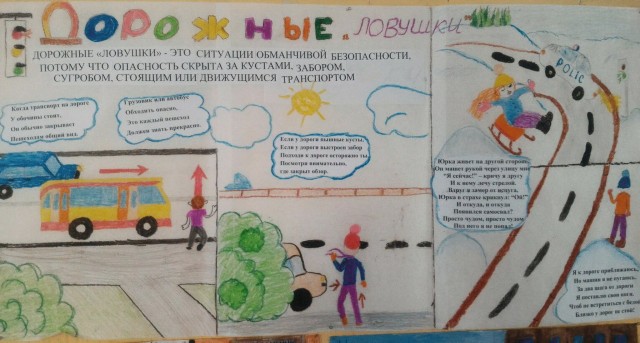 Дорожные „ловушки“
ДОРОЖНЫЕ «ЛОВУШКИ» - ЭТО СИТУАЦИИ ОБМАНЧИВОЙ БЕЗОПАСНОСТИ,
ПОТОМУ ЧТО ОПАСНОСТЬ СКРЫТА ЗА КУСТАМИ, ЗАБОРОМ,
СУГРОБОМ, СТОЯЩИМ ИЛИ ДВИЖУЩИМСЯ ТРАНСПОРТОМ
Когда транспорт на дороге
У обочины стоит,
Он обычно закрывает
Пешеходам общий вид.
Грузовик или автобус
Обходить опасно.
Это каждый пешеход
Должен знать прекрасно.
Если у дороги пышные кусты,
Если у дороги выстроен забор
Подходи к дороге осторожно ты.
Посмотри внимательно,
где закрыт обзор.
POLIC
Юрка живет на другой стороне.
Он машет рукой через улицу мне
"Я сейчас!" – кричу я другу
И к нему лечу стрелой.
Вдруг я замер от испуга.
Юрка в страхе крикнул: "Ой!"
И откуда, и откуда
Появился самосвал?
Просто чудом, просто чудом
Под него я не попал!
Я к дороге приближаюсь,
Но машин я не пугаюсь,
За два шага от дороги
Я поставлю свои ноги,
Чтоб не встретиться с бедой
Близко у дорог не стой!